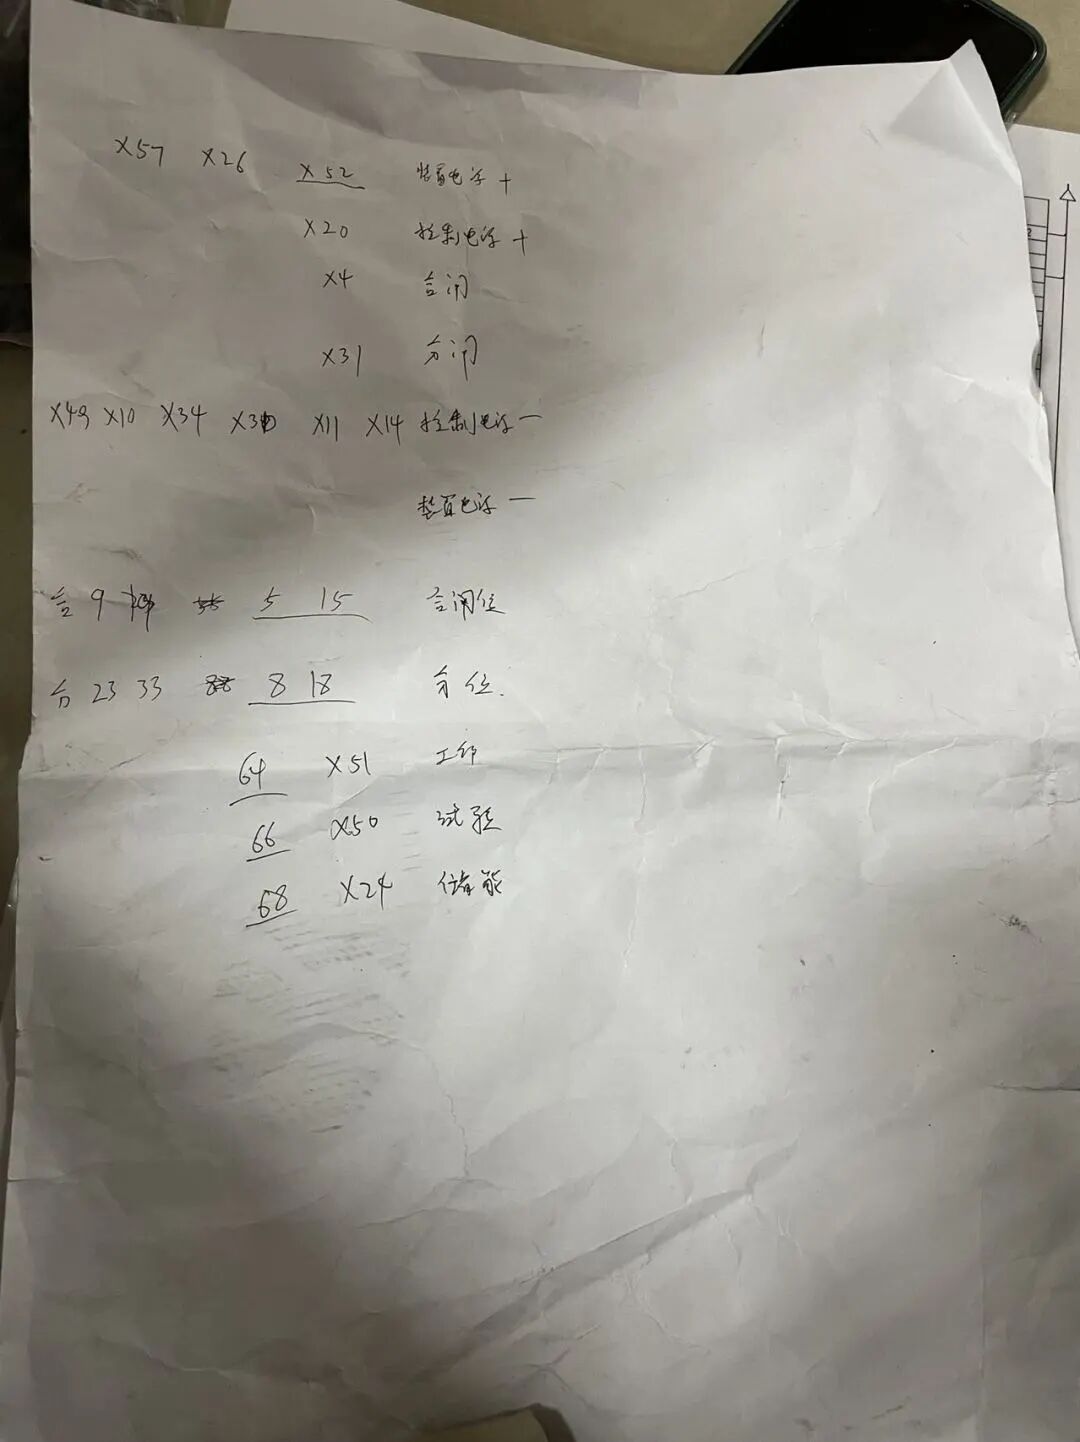 X57 X26 X52 装置电源 +
X20 控制电源 +
X4 合闸
X31 分闸
X49 X10 X34 X30 X11 X14 控制电源 —
装置电源 —
合 9 5 15 合闸位
分 23 33 8 18 分位.
64 X51 工作
66 X50 试验
68 X24 储能
2